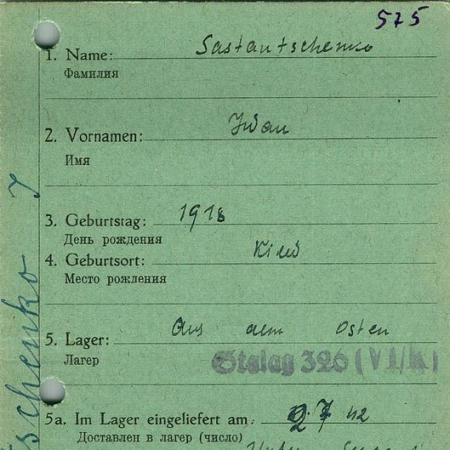 575
1. Name: Sastantschenko
Фамилия
2. Vornamen: Iwan
Имя
3. Geburtstag: 1918
День рождения
4. Geburtsort: Kiew
Место рожления
5. Lager: Aus dem Osten
Лагер
Stalag 326 (VI/K)
5a. Im Lager eingeliefert am: 42
Доставлен в лагер (число)